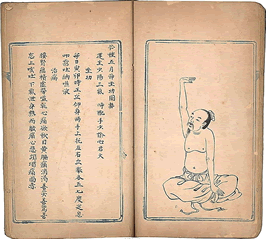 芒種五月節坐功圖勢
運主少陽三氣 時配手少陰心君火
坐功
每日寅卯時正立仰身兩手上托左右力舉各五七度定息
叩齒吐納嚥液
治病
腰腎蘊積虛勞嗌乾心痛欲飲目黃脇痛消渴善笑善驚善
忘上咳吐下氣泄身熱而股痛心悲頭項痛面赤